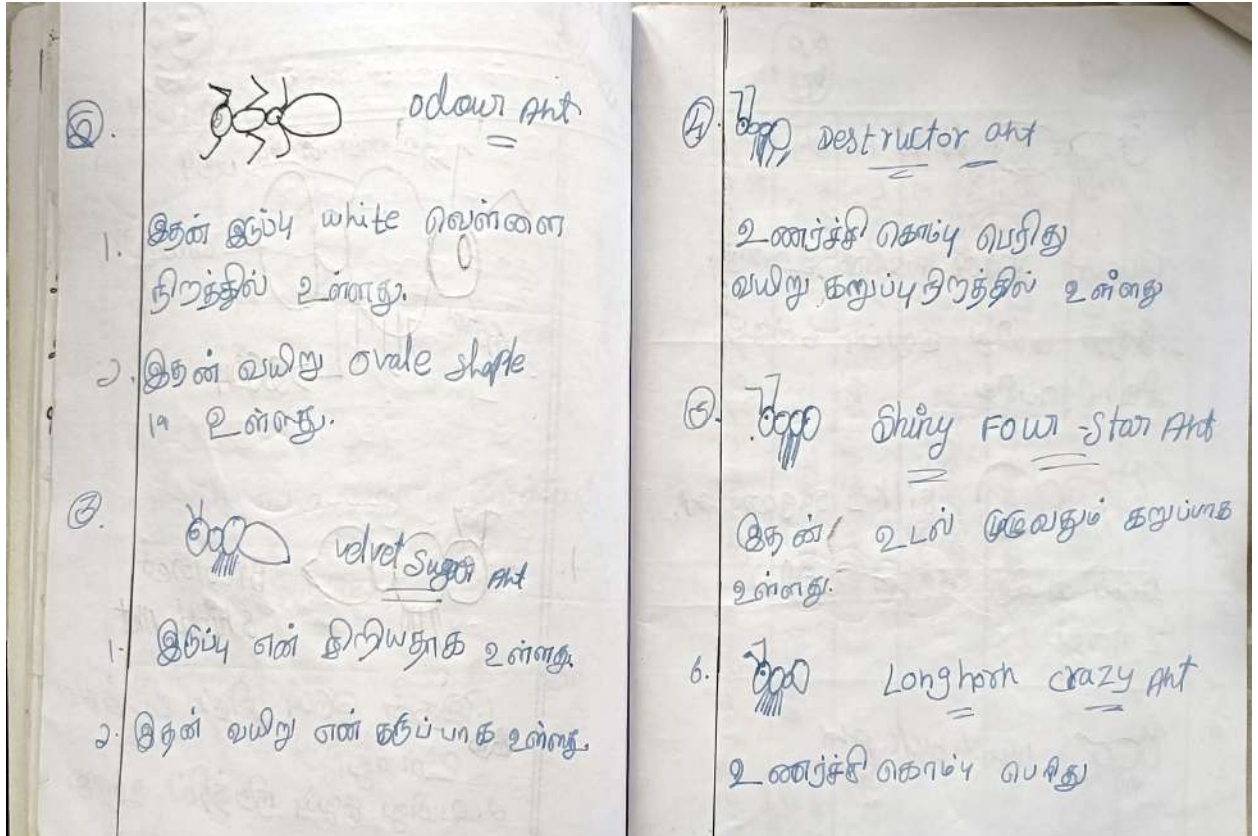 2. odour Ant
1. இதன் இடுப்பு white வெள்ளை
நிறத்தில் உள்ளது.
2. இதன் வயிறு ovale shape
la உள்ளது.
3. velvet Sugar Ant
1. இடுப்பு என் சிறியதாக உள்ளது.
2. இதன் வயிறு என் கடுப்பாக உள்ளது.
4. Destructor ant
உணர்ச்சி கொம்பு பெரிது
வயிறு கறுப்பு நிறத்தில் உள்ளது
5. Shiny Four-Star Ant
இதன் உடல் முழுவதும் கறுப்பாக
உள்ளது.
6. Longhorn crazy Ant
உணர்ச்சி கொம்பு பெரிது